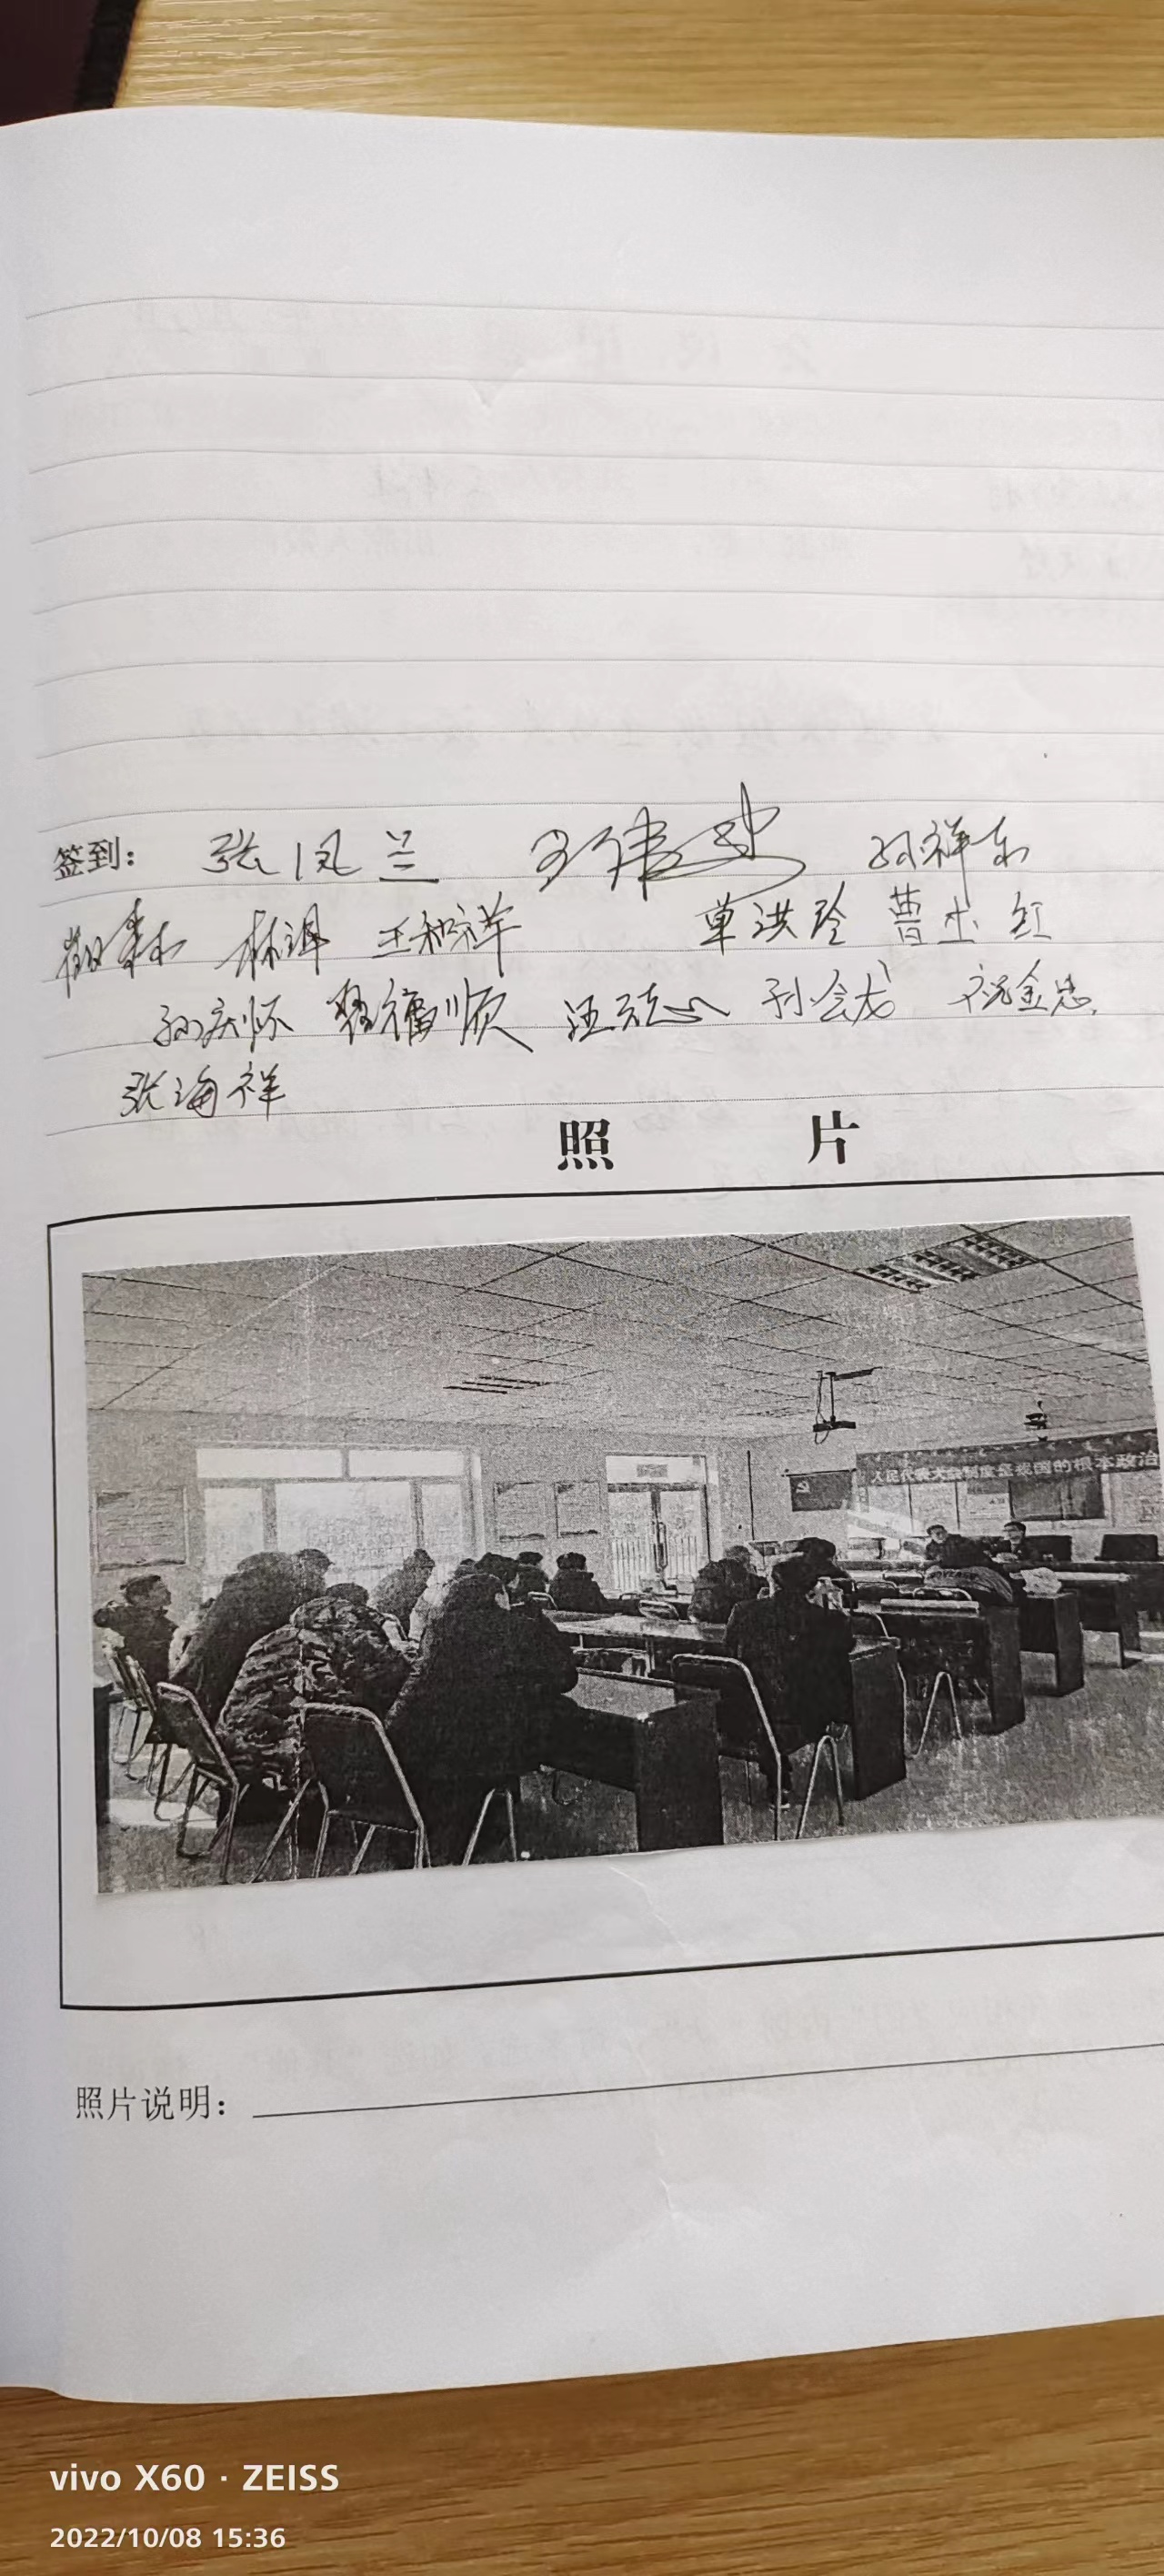 签到： 张凤兰 孙祥东
林海 王和祥 单洪玲 曹玉红
孙庆怀 翟福顺 汪志心 孙会龙 祝金忠
张海祥
照 片
人民代表大会制度是我国的根本政治
照片说明：
vivo X60 · ZEISS
2022/10/08 15:36